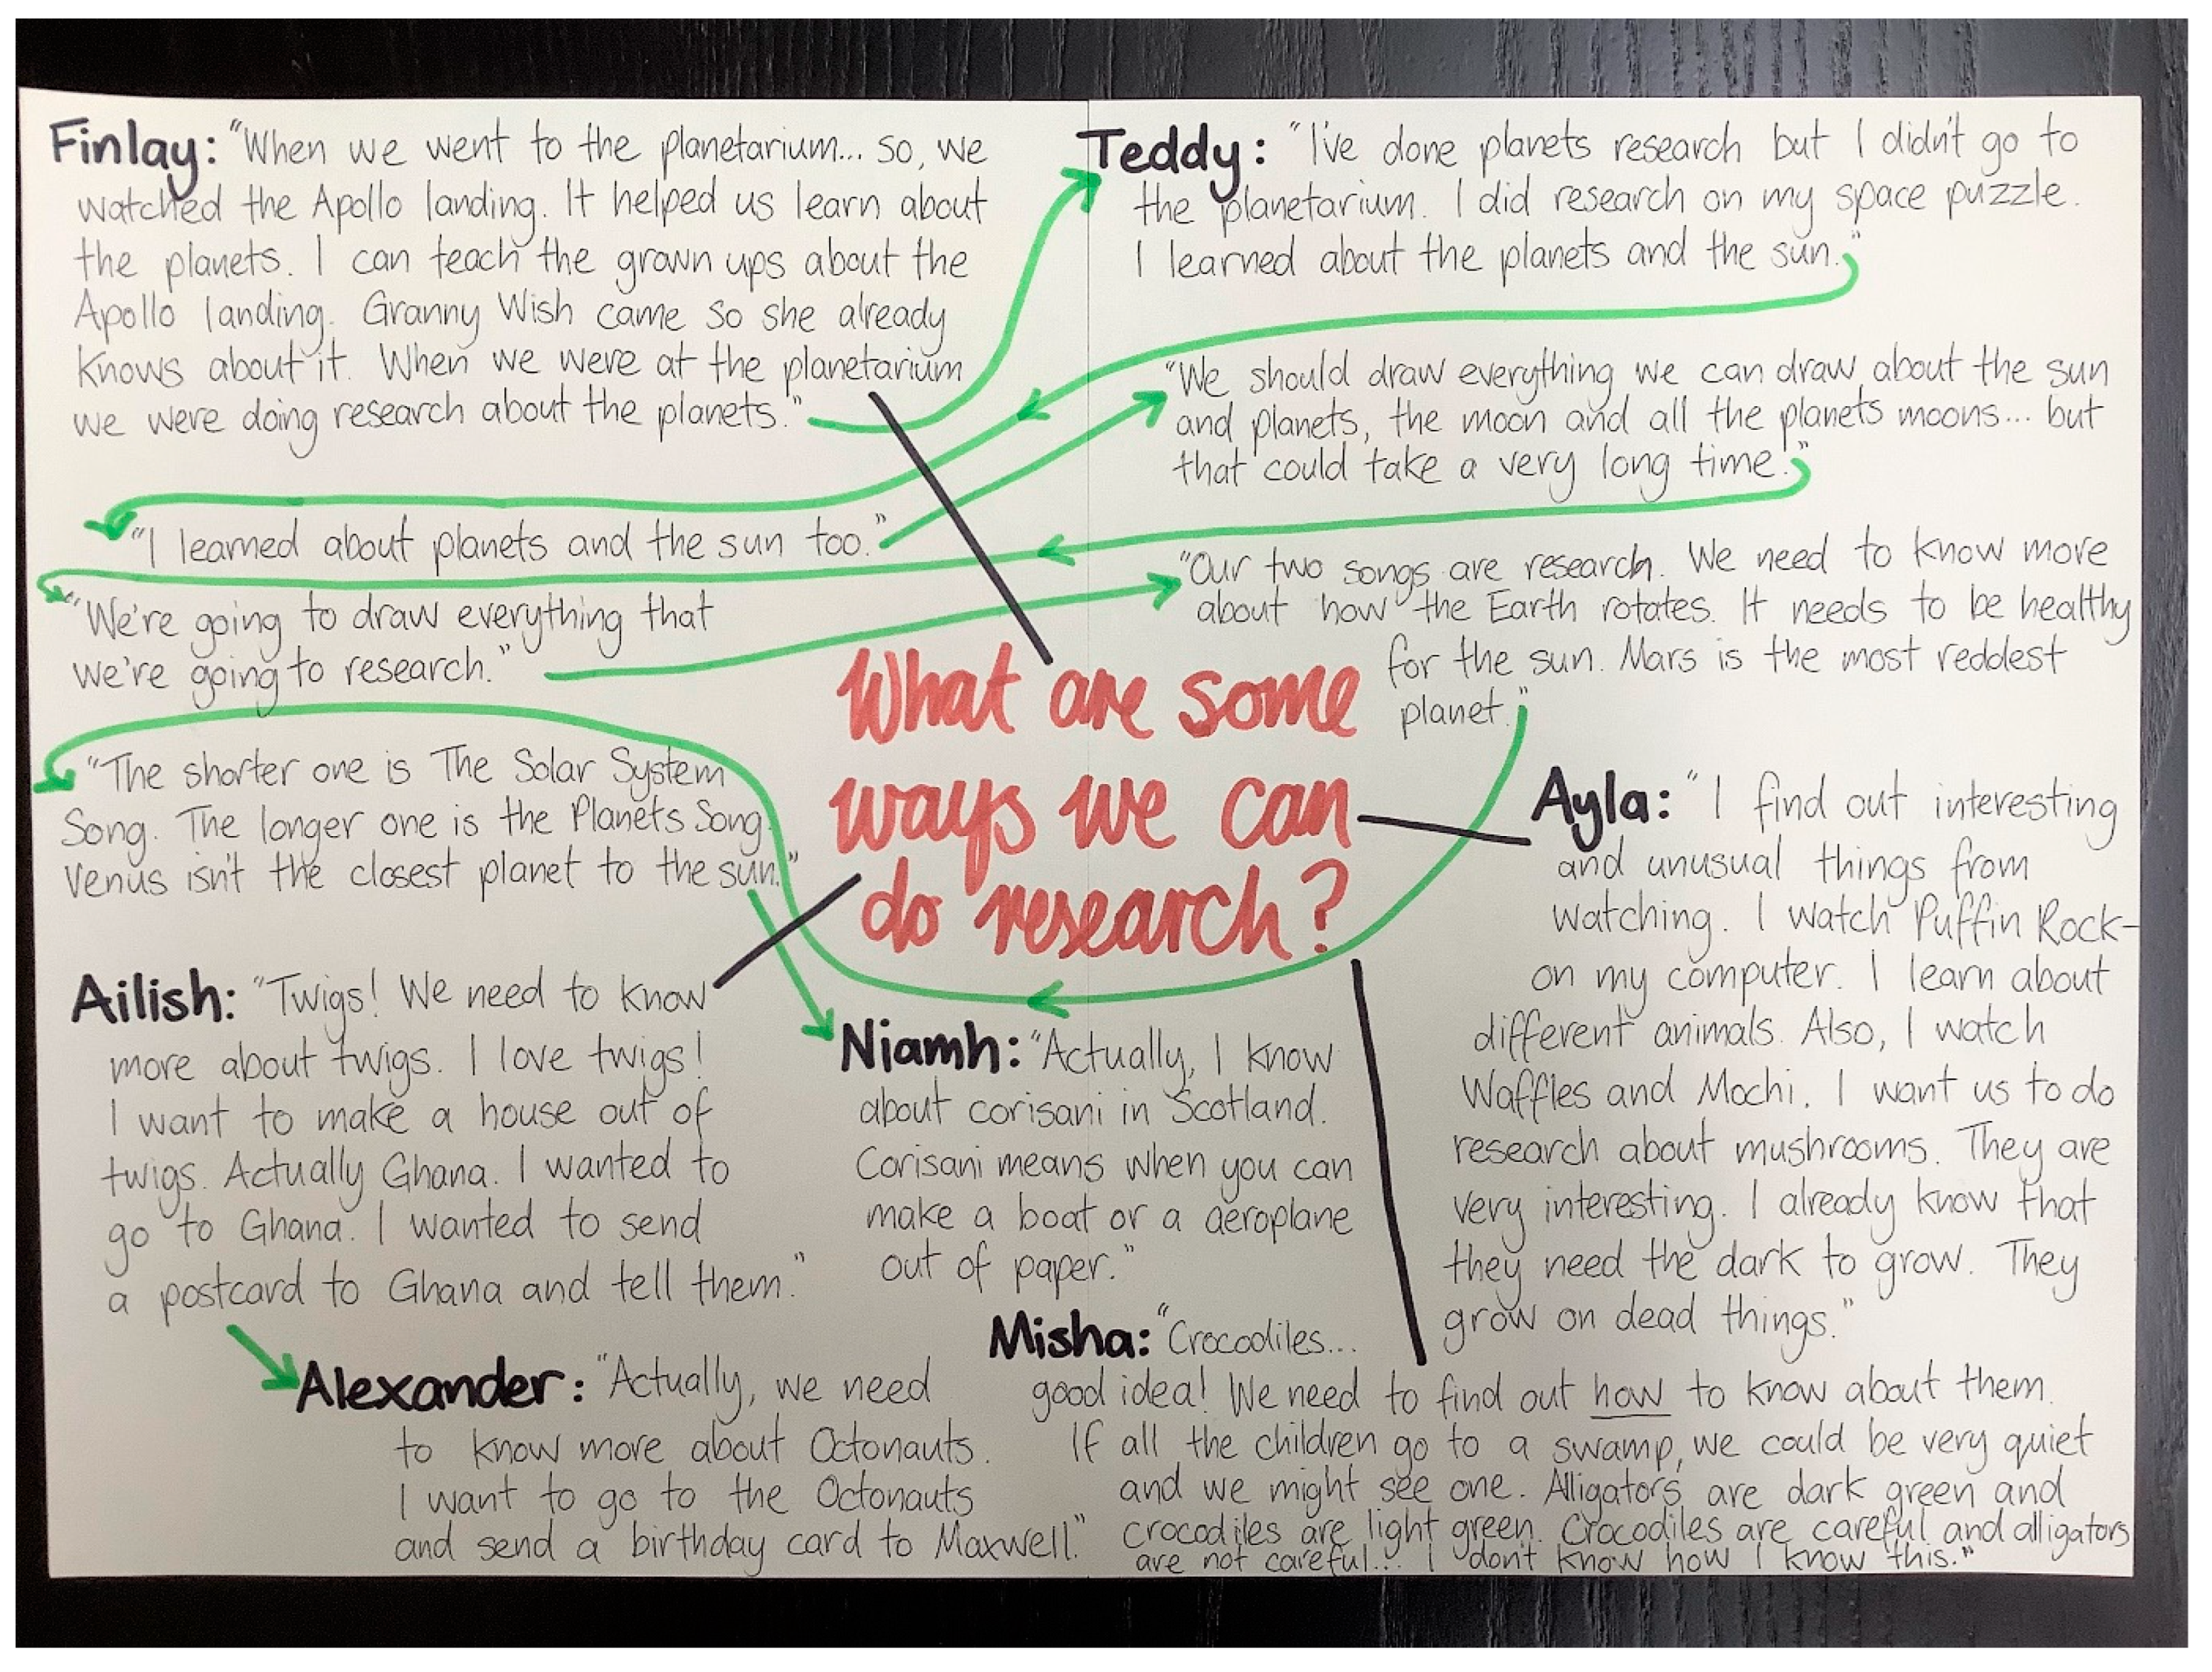 Finlay: "When we went to the planetarium... so, we
watched the Apollo landing. It helped us learn about
the planets. I can teach the grown ups about the
Apollo landing. Granny Wish came so she already
knows about it. When we were at the planetarium
we were doing research about the planets."
Teddy: "I've done planets research but I didn't go to
the planetarium. I did research on my space puzzle.
I learned about the planets and the sun."
"I learned about planets and the sun too."
"We should draw everything we can draw about the sun
and planets, the moon and all the planets moons... but
that could take a very long time."
"We're going to draw everything that
we're going to research."
"Our two songs are research. We need to know more
about how the Earth rotates. It needs to be healthy
for the sun. Mars is the most reddest
planet."
"The shorter one is The Solar System
Song. The longer one is the Planets Song.
Venus isn't the closest planet to the sun."
What are some
ways we can
do research?
Niamh: "Actually, I know
about corisani in Scotland.
Corisani means when you can
make a boat or a aeroplane
out of paper."
Ailish: "Twigs! We need to know
more about twigs. I love twigs!
I want to make a house out of
twigs. Actually Ghana. I wanted to
go to Ghana. I wanted to send
a postcard to Ghana and tell them."
Alexander: "Actually, we need
to know more about Octonauts.
I want to go to the Octonauts
and send a birthday card to Maxwell."
Ayla: "I find out interesting
and unusual things from
watching. I watch Puffin Rock-
on my computer. I learn about
different animals. Also, I watch
Waffles and Mochi. I want us to do
research about mushrooms. They are
very interesting. I already know that
they need the dark to grow. They
grow on dead things."
Misha: "Crocodiles...
good idea! We need to find out how to know about them.
If all the children go to a swamp, we could be very quiet
and we might see one. Alligators are dark green and
crocodiles are light green. Crocodiles are careful and alligators
are not careful... I don't know how I know this."